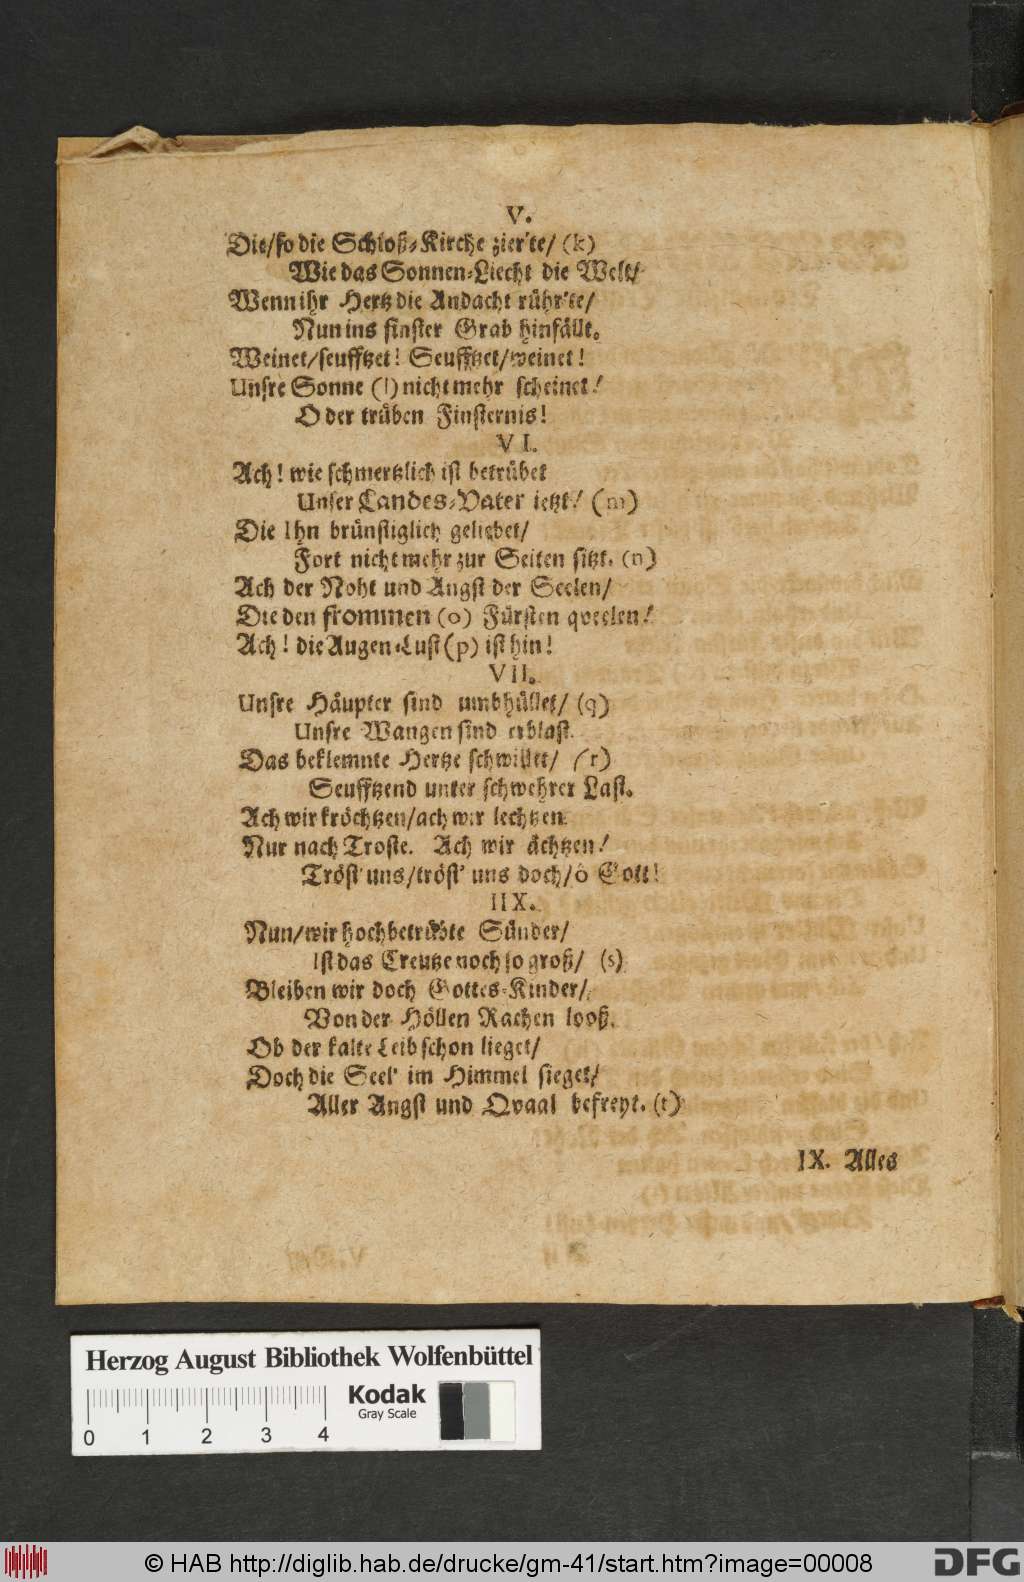 V.
Die/so die Schloß-Kirche zier'te/ (k)
Wie das Sonnen-Liecht die Welt/
Wenn ihr Hertz die Andacht rühr'te/
Nun ins finster Grab hinfällt.
Weinet/seufftzet! Seufftzet/weinet!
Unsre Sonne (l) nicht mehr scheinet!
O der trüben Finsternis!
VI.
Ach! wie schmertzlich ist betrübet
Unser Landes-Vater ietzt! (m)
Die Ihn brünstiglich geliebet/
Fort nicht mehr zur Seiten sitzt. (n)
Ach der Noht und Angst der Seelen/
Die den frommen (o) Fürsten qveelen!
Ach! die Augen-Lust (p) ist hin!
VII.
Unsre Häupter sind umbhüllet/ (q)
Unsre Wangen sind erblast.
Das beklemnte Hertze schwillet/ (r)
Seufftzend unter schwehrer Last.
Ach wir kröchtzen/ach wir lechtzen.
Nur nach Troste. Ach wir ächtzen!
Tröst' uns/tröst' uns doch/ô Gott!
IIX.
Nun/wir hochbetrübte Sünder/
Ist das Creutze noch so groß/ (s)
Bleiben wir doch Gottes-Kinder/
Von der Höllen Rachen looß.
Ob der kalte Leib schon lieget/
Doch die Seel' im Himmel sieget/
Aller Angst und Qvaal befreyt. (t)
IX. Alles
Herzog August Bibliothek Wolfenbüttel
Kodak
Gray Scale
0 1 2 3 4
© HAB http://diglib.hab.de/drucke/gm-41/start.htm?image=00008
DFG